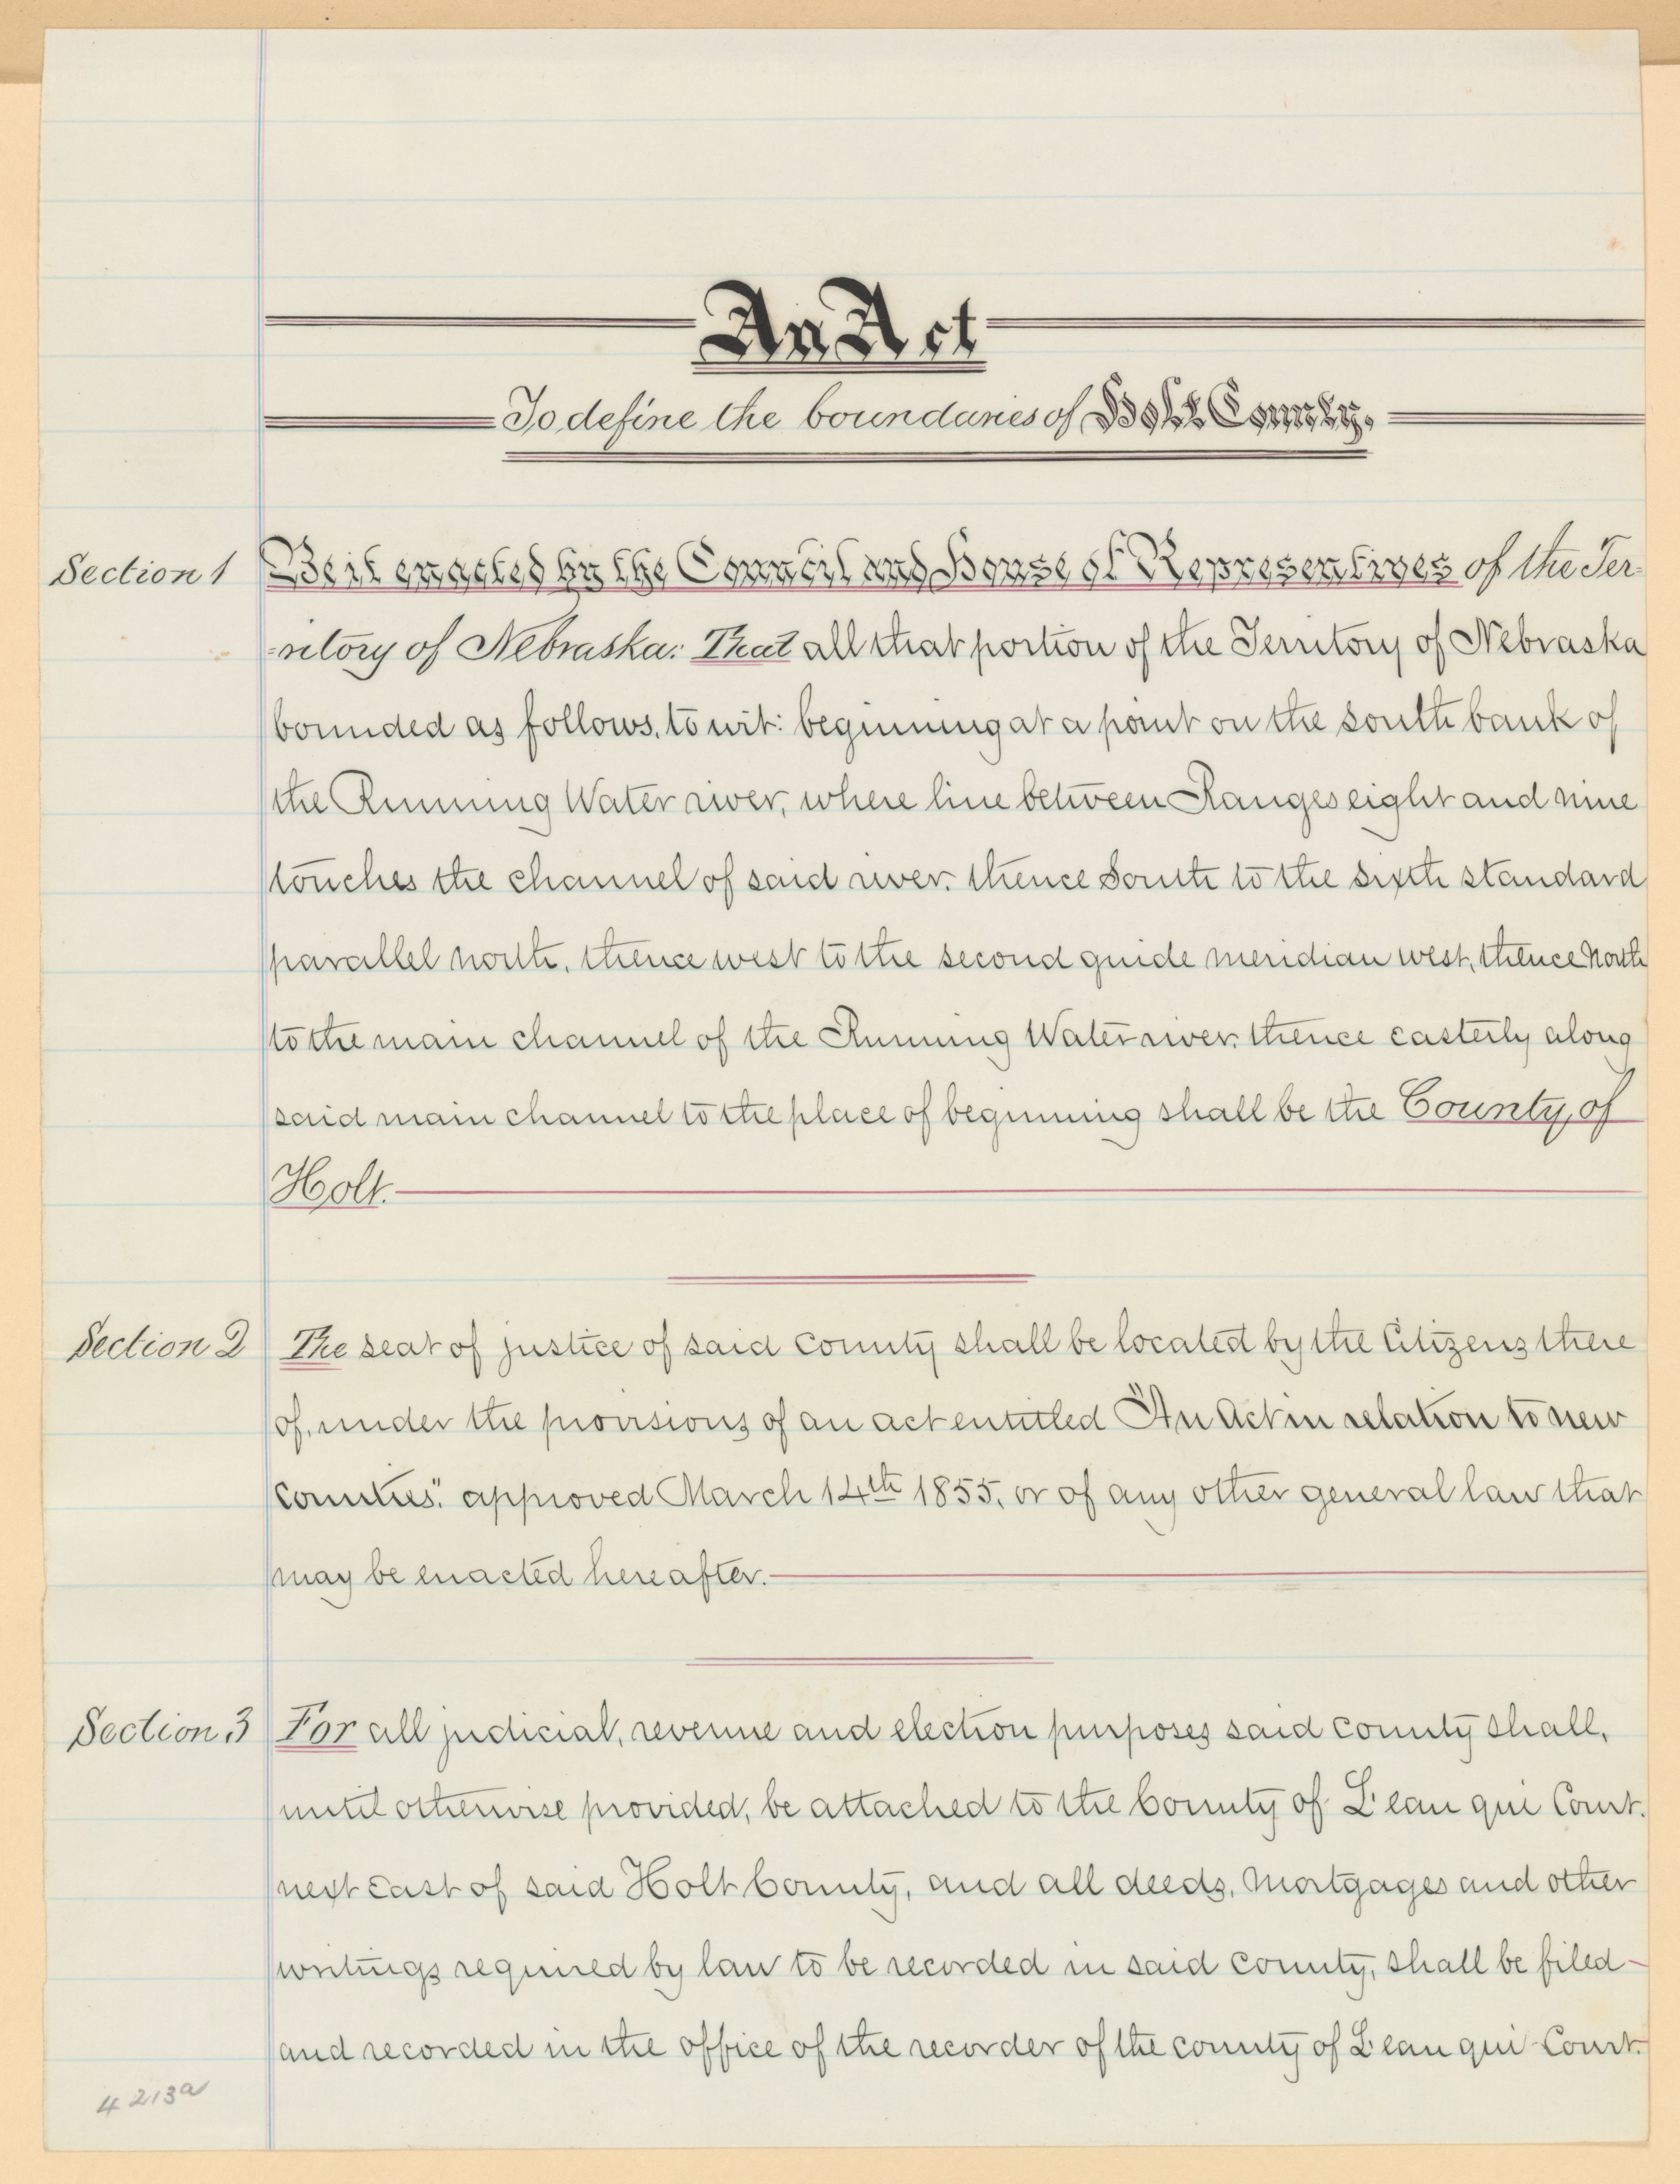 An Act
To define the boundaries of Holt County.
Section 1 Be it enacted by the Council and House of Representives of the Ter-
-ritory of Nebraska: That all that portion of the Territory of Nebraska
bounded as follows, to wit: beginning at a point on the south bank of
the Running Water river, where line between Ranges eight and nine
touches the channel of said river. thence South to the sixth standard
parallel north, thence west to the second guide meridian west, thence North
to the main channel of the Running Water river. thence easterly along
said main channel to the place of beginning shall be the County of
Holt.
Section 2 The seat of justice of said County shall be located by the Citizens there
of, under the provisions of an act entitled "An Act in relation to new
Counties". approved March 14th 1855, or of any other general law that
may be enacted hereafter.
Section 3 For all judicial, revenue and election purposes said county shall,
until otherwise provided, be attached to the County of L'eau qui Court.
next East of said Holt County, and all deeds, Mortgages and other
writings required by law to be recorded in said County, shall be filed -
and recorded in the office of the recorder of the county of L'eau qui Court.
4213a